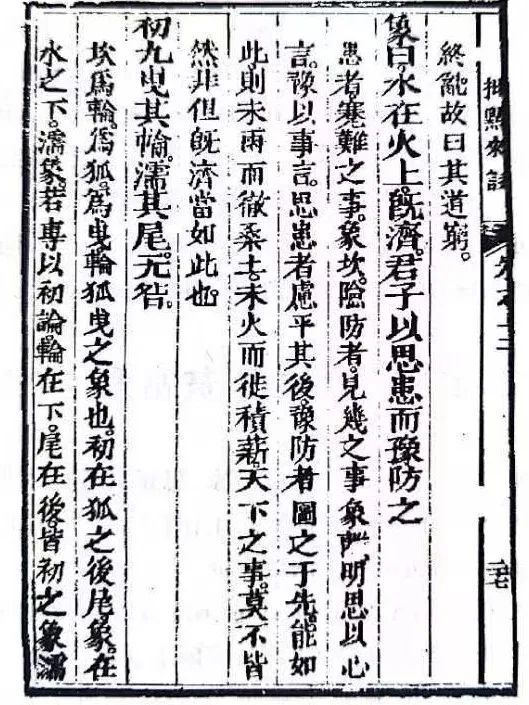 終亂故曰其道窮。
象曰。水在火上。既濟。君子以思患而豫防之
患者。蹇難之事。象坎。險防者。見幾之事。象離。明思以心
言。豫以事言。思患者慮乎其後。豫防者圖之于先。能如
此則未雨而徹桑土。未火而徙積薪。天下之事。莫不皆
然。非但既濟當如此也。
初九。曳其輪。濡其尾。无咎。
坎為輪。為狐。為曳輪狐曳之象也。初在狐之後。尾象。在
水之下。濡象。若專以初論輪在下。尾在後。皆初之象。濡